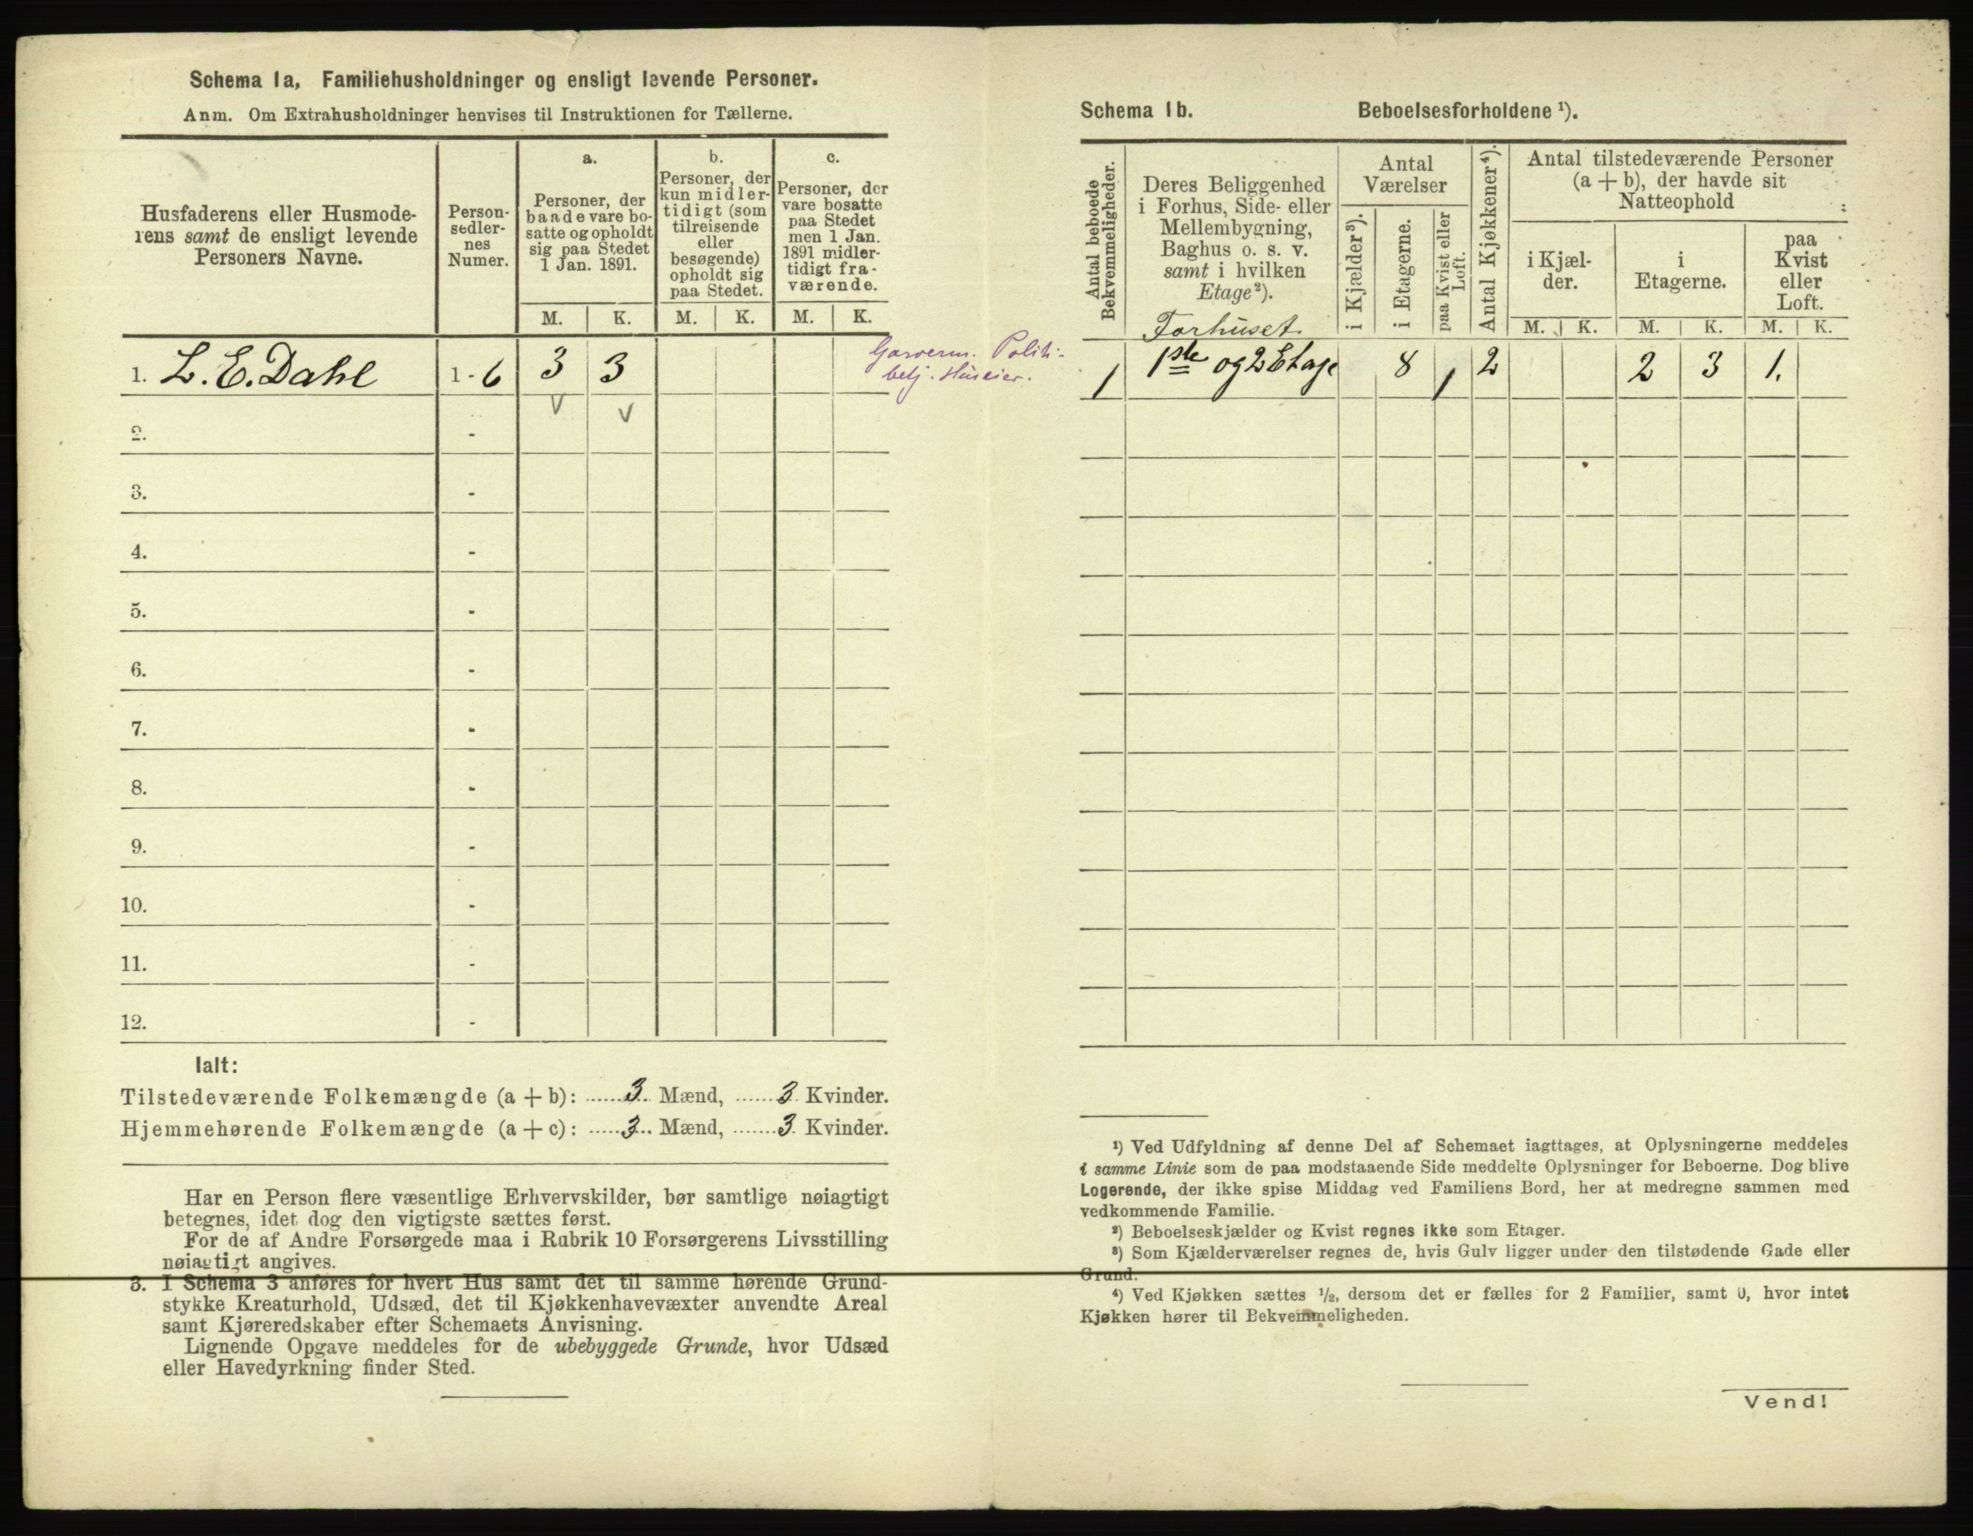 Schema 1a, Familiehusholdninger og ensligt levende Personer.
Anm. Om Extrahusholdninger henvises til Instruktionen for Tællerne.
Husfaderens eller Husmode-
rens samt de ensligt levende
Personers Navne.
Person-
sedler-
nes
Numer.
a.
Personer, der
baade vare bo-
satte og opholdt
sig paa Stedet
1 Jan. 1891.
b.
Personer, der
kun midler-
tidigt (som
tilreisende
eller
besøgende)
opholdt sig
paa Stedet.
c.
Personer, der
vare bosatte
paa Stedet
men 1 Jan.
1891 midler-
tidigt fra-
værende.
M. K. M. K. M. K.
1. L. E. Dahl 1 - 6 3 3
Politi-
Huseier.
2. -
3. -
4. -
5. -
6. -
7. -
8. -
9. -
10. -
11. -
12. -
Ialt:
Tilstedeværende Folkemængde (a + b): 3 Mænd, 3 Kvinder.
Hjemmehørende Folkemængde (a + c): 3 Mænd, 3 Kvinder.
Har en Person flere væsentlige Erhvervskilder, bør samtlige nøiagtigt
betegnes, idet dog den vigtigste sættes først.
For de af Andre Forsørgede maa i Rubrik 10 Forsørgerens Livsstilling
nøiagtigt angives.
3. I Schema 3 anføres for hvert Hus samt det til samme hørende Grund-
stykke Kreaturhold, Udsæd, det til Kjøkkenhavevæxter anvendte Areal
samt Kjøreredskaber efter Schemaets Anvisning.
Lignende Opgave meddeles for de ubebyggede Grunde, hvor Udsæd
eller Havedyrkning finder Sted.
Schema 1b. Beboelsesforholdene ¹).
Antal beboede
Bekvemmeligheder.
Deres Beliggenhed
i Forhus, Side- eller
Mellembygning,
Baghus o. s. v.
samt i hvilken
Etage²).
Antal
Værelser
i Kjælder³).
i Etagerne.
paa Kvist eller
Loft.
Antal Kjøkkener⁴).
Antal tilstedeværende Personer
(a + b), der havde sit
Natteophold :
i Kjæl-
der.
i
Etagerne.
paa
Kvist
eller
Loft.
M. K. M. K. M. K.
Forhuset.
1 1ste og 2 Etage 8 1 2 2 3 1.
¹) Ved Udfyldning af denne Del af Schemaet iagttages, at Oplysningerne meddeles
i samme Linie som de paa modstaaende Side meddelte Oplysninger for Beboerne. Dog blive
Logerende, der ikke spise Middag ved Familiens Bord, her at medregne sammen med
vedkommende Familie.
²) Beboelseskjælder og Kvist regnes ikke som Etager.
³) Som Kjælderværelser regnes de, hvis Gulv ligger under den tilstødende Gade eller
Grund.
⁴) Ved Kjøkken sættes ½, dersom det er fælles for 2 Familier, samt 0, hvor intet
Kjøkken hører til Bekvemmeligheden.
Vend!